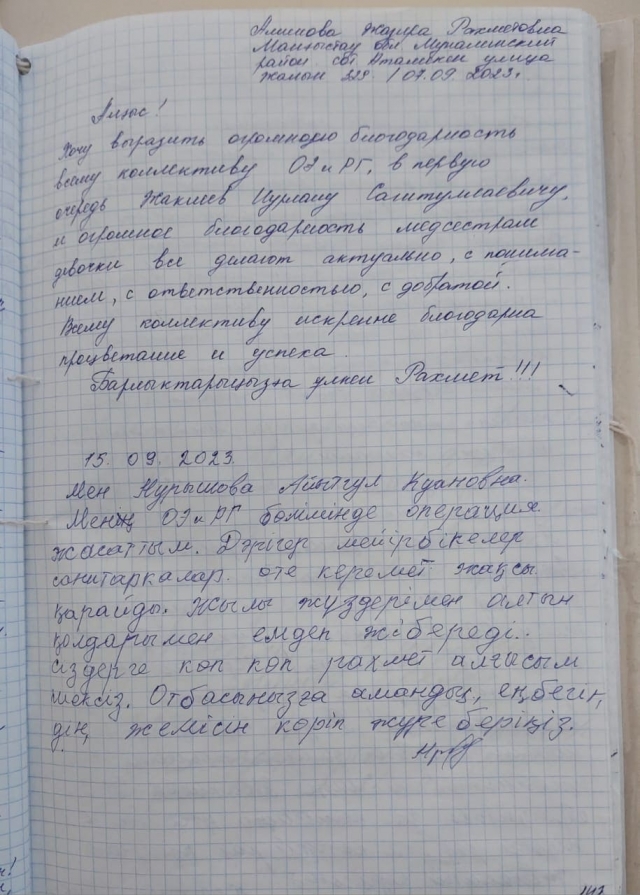 Аминова Жазира Рахметовна
Мангыстау обл Мунайлинский
район сот Атамекен улица
Жалын 228. / 07.09.2023г
Плюс!
Хочу выразить огромную благодарность
всему коллективу ОЭиРГ, в первую
очередь Жакиев Нурлану
и огромное благодарность медсестрам
девочки все делают актуально, с понима-
нием, с ответственностью, с добратой.
Всему коллективу искренне благодарна
процветание и успеха.
Барлыктарыңызға улкен Рахмет!!!
15. 09. 2023.
Мен Нурышова Айытгул Куановна.
Менің ОЭиРГ бөлімінде операция
жасаттым. Дәрігер мейірбікелер
санитаркалар. өте керемет жақсы
қарайды. Жылы жүздерімен алтын
қолдарымен емдеп жібереді.
сіздерге көп көп рахмет алғысым
шексіз. Отбасыңызға амандық, еңбегің,
дің, жемісін көріп жүре беріңіз.